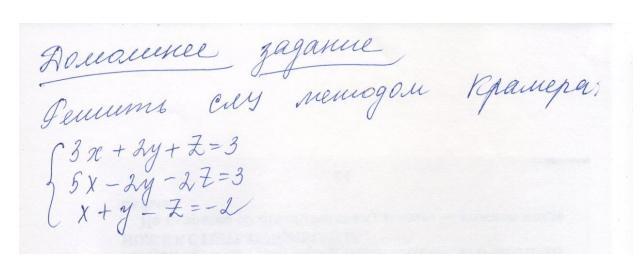 Домашнее задание
Решить слу методом Крамера:
3x + 2y + z = 3
5x - 2y - 2z = 3
x + y - z = -2